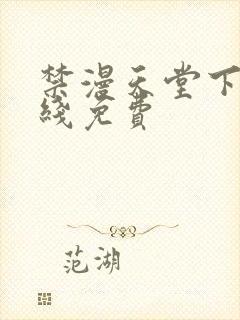 禁漫天堂下
线免費
范湖